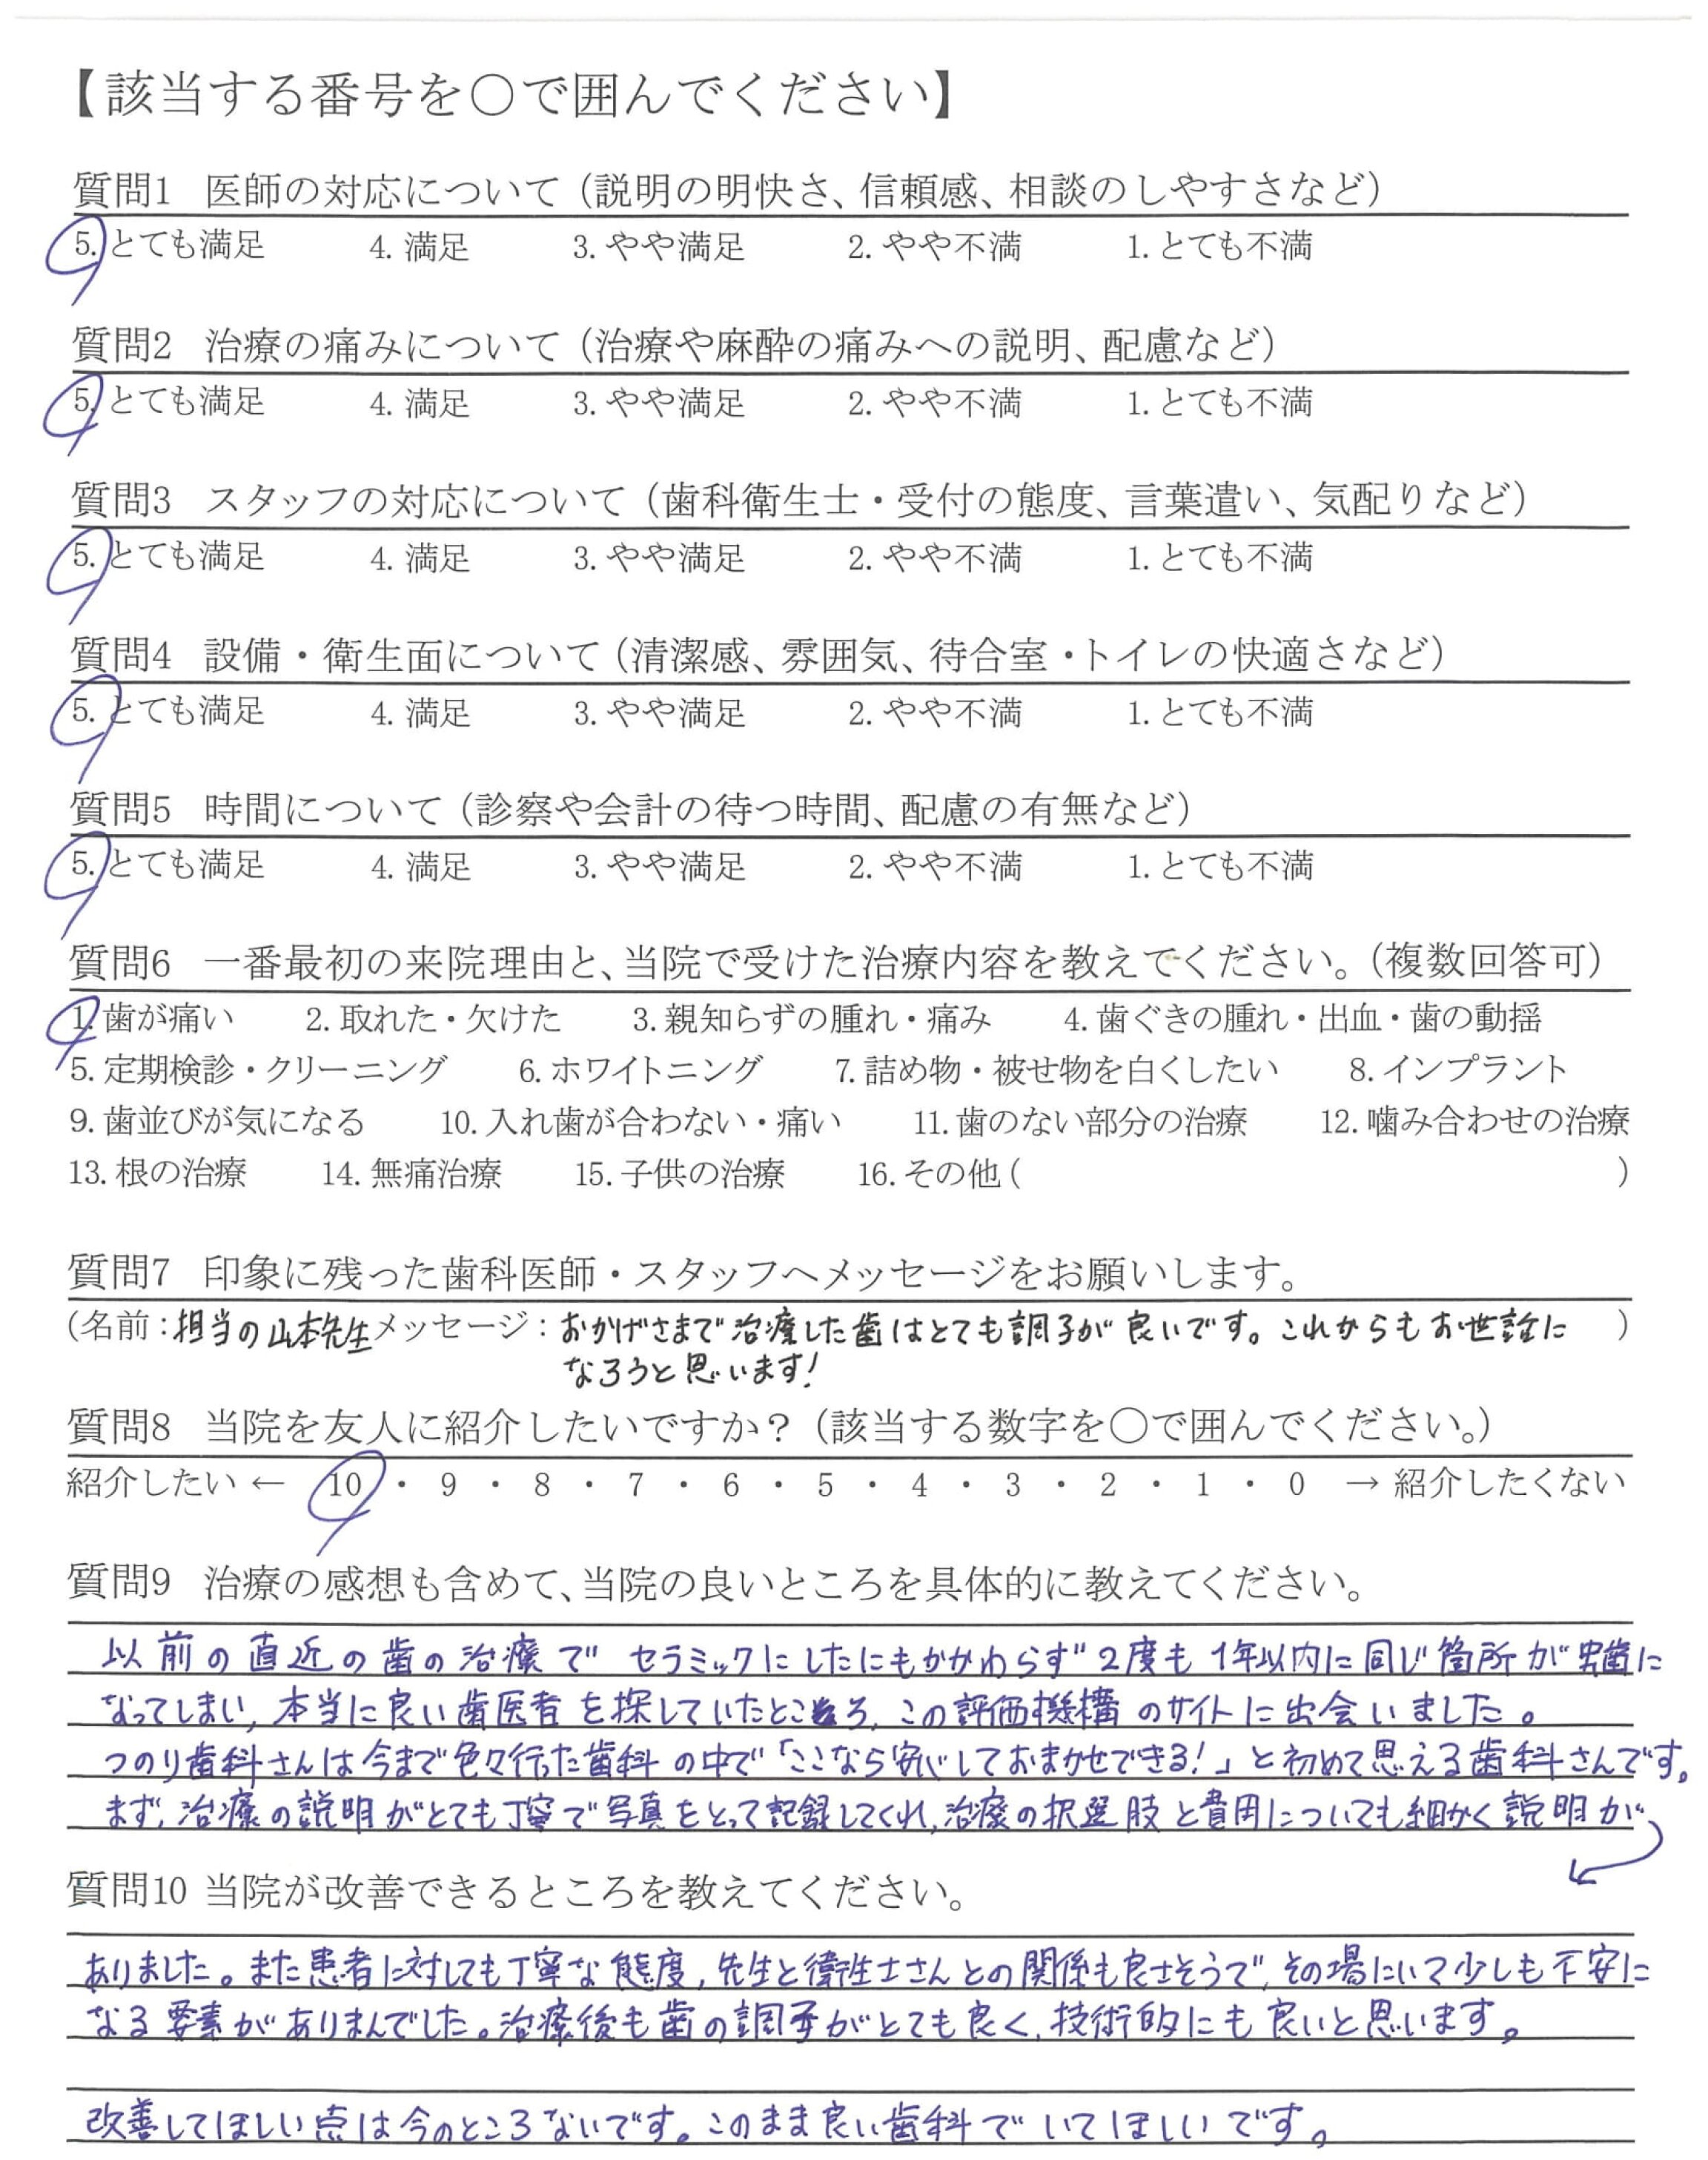 【該当する番号を○で囲んでください】
質問1 医師の対応について（説明の明快さ、信頼感、相談のしやすさなど）
5. とても満足 4. 満足 3. やや満足 2. やや不満 1. とても不満
質問2 治療の痛みについて（治療や麻酔の痛みへの説明、配慮など）
5. とても満足 4. 満足 3. やや満足 2. やや不満 1. とても不満
質問3 スタッフの対応について（歯科衛生士・受付の態度、言葉遣い、気配りなど）
5. とても満足 4. 満足 3. やや満足 2. やや不満 1. とても不満
質問4 設備・衛生面について（清潔感、雰囲気、待合室・トイレの快適さなど）
5. とても満足 4. 満足 3. やや満足 2. やや不満 1. とても不満
質問5 時間について（診察や会計の待つ時間、配慮の有無など）
5. とても満足 4. 満足 3. やや満足 2. やや不満 1. とても不満
質問6 一番最初の来院理由と、当院で受けた治療内容を教えてください。（複数回答可）
1. 歯が痛い 2. 取れた・欠けた 3. 親知らずの腫れ・痛み 4. 歯ぐきの腫れ・出血・歯の動揺
5. 定期検診・クリーニング 6. ホワイトニング 7. 詰め物・被せ物を白くしたい 8. インプラント
9. 歯並びが気になる 10. 入れ歯が合わない・痛い 11. 歯のない部分の治療 12. 噛み合わせの治療
13. 根の治療 14. 無痛治療 15. 子供の治療 16. その他（ ）
質問7 印象に残った歯科医師・スタッフへメッセージをお願いします。
（名前：担当の山本先生 メッセージ：おかげさまで治療した歯はとても調子が良いです。これからもお世話に ）
なろうと思います！
質問8 当院を友人に紹介したいですか？（該当する数字を○で囲んでください。）
紹介したい ← 10 ・ 9 ・ 8 ・ 7 ・ 6 ・ 5 ・ 4 ・ 3 ・ 2 ・ 1 ・ 0 → 紹介したくない
質問9 治療の感想も含めて、当院の良いところを具体的に教えてください。
以前の直近の歯の治療で セラミックにしたにもかかわらず 2度も 1年以内に同じ箇所が虫歯に
なってしまい、本当に良い歯医者を探していたところ、この評価機構のサイトに出会いました。
つのり歯科さんは今まで色々行った歯科の中で「ここなら安心しておまかせできる！」と初めて思える歯科さんです。
まず、治療の説明がとても丁寧で写真をとって記録してくれ、治療の択選肢と費用についても細かく説明が
質問10 当院が改善できるところを教えてください。
ありました。また患者に対しても丁寧な態度、先生と衛生士さんとの関係も良さそうで、その場にいて少しも不安に
なる要素がありまんでした。治療後も歯の調子がとても良く、技術的にも良いと思います。
改善してほしい点は今のところないです。このまま良い歯科でいてほしいです。